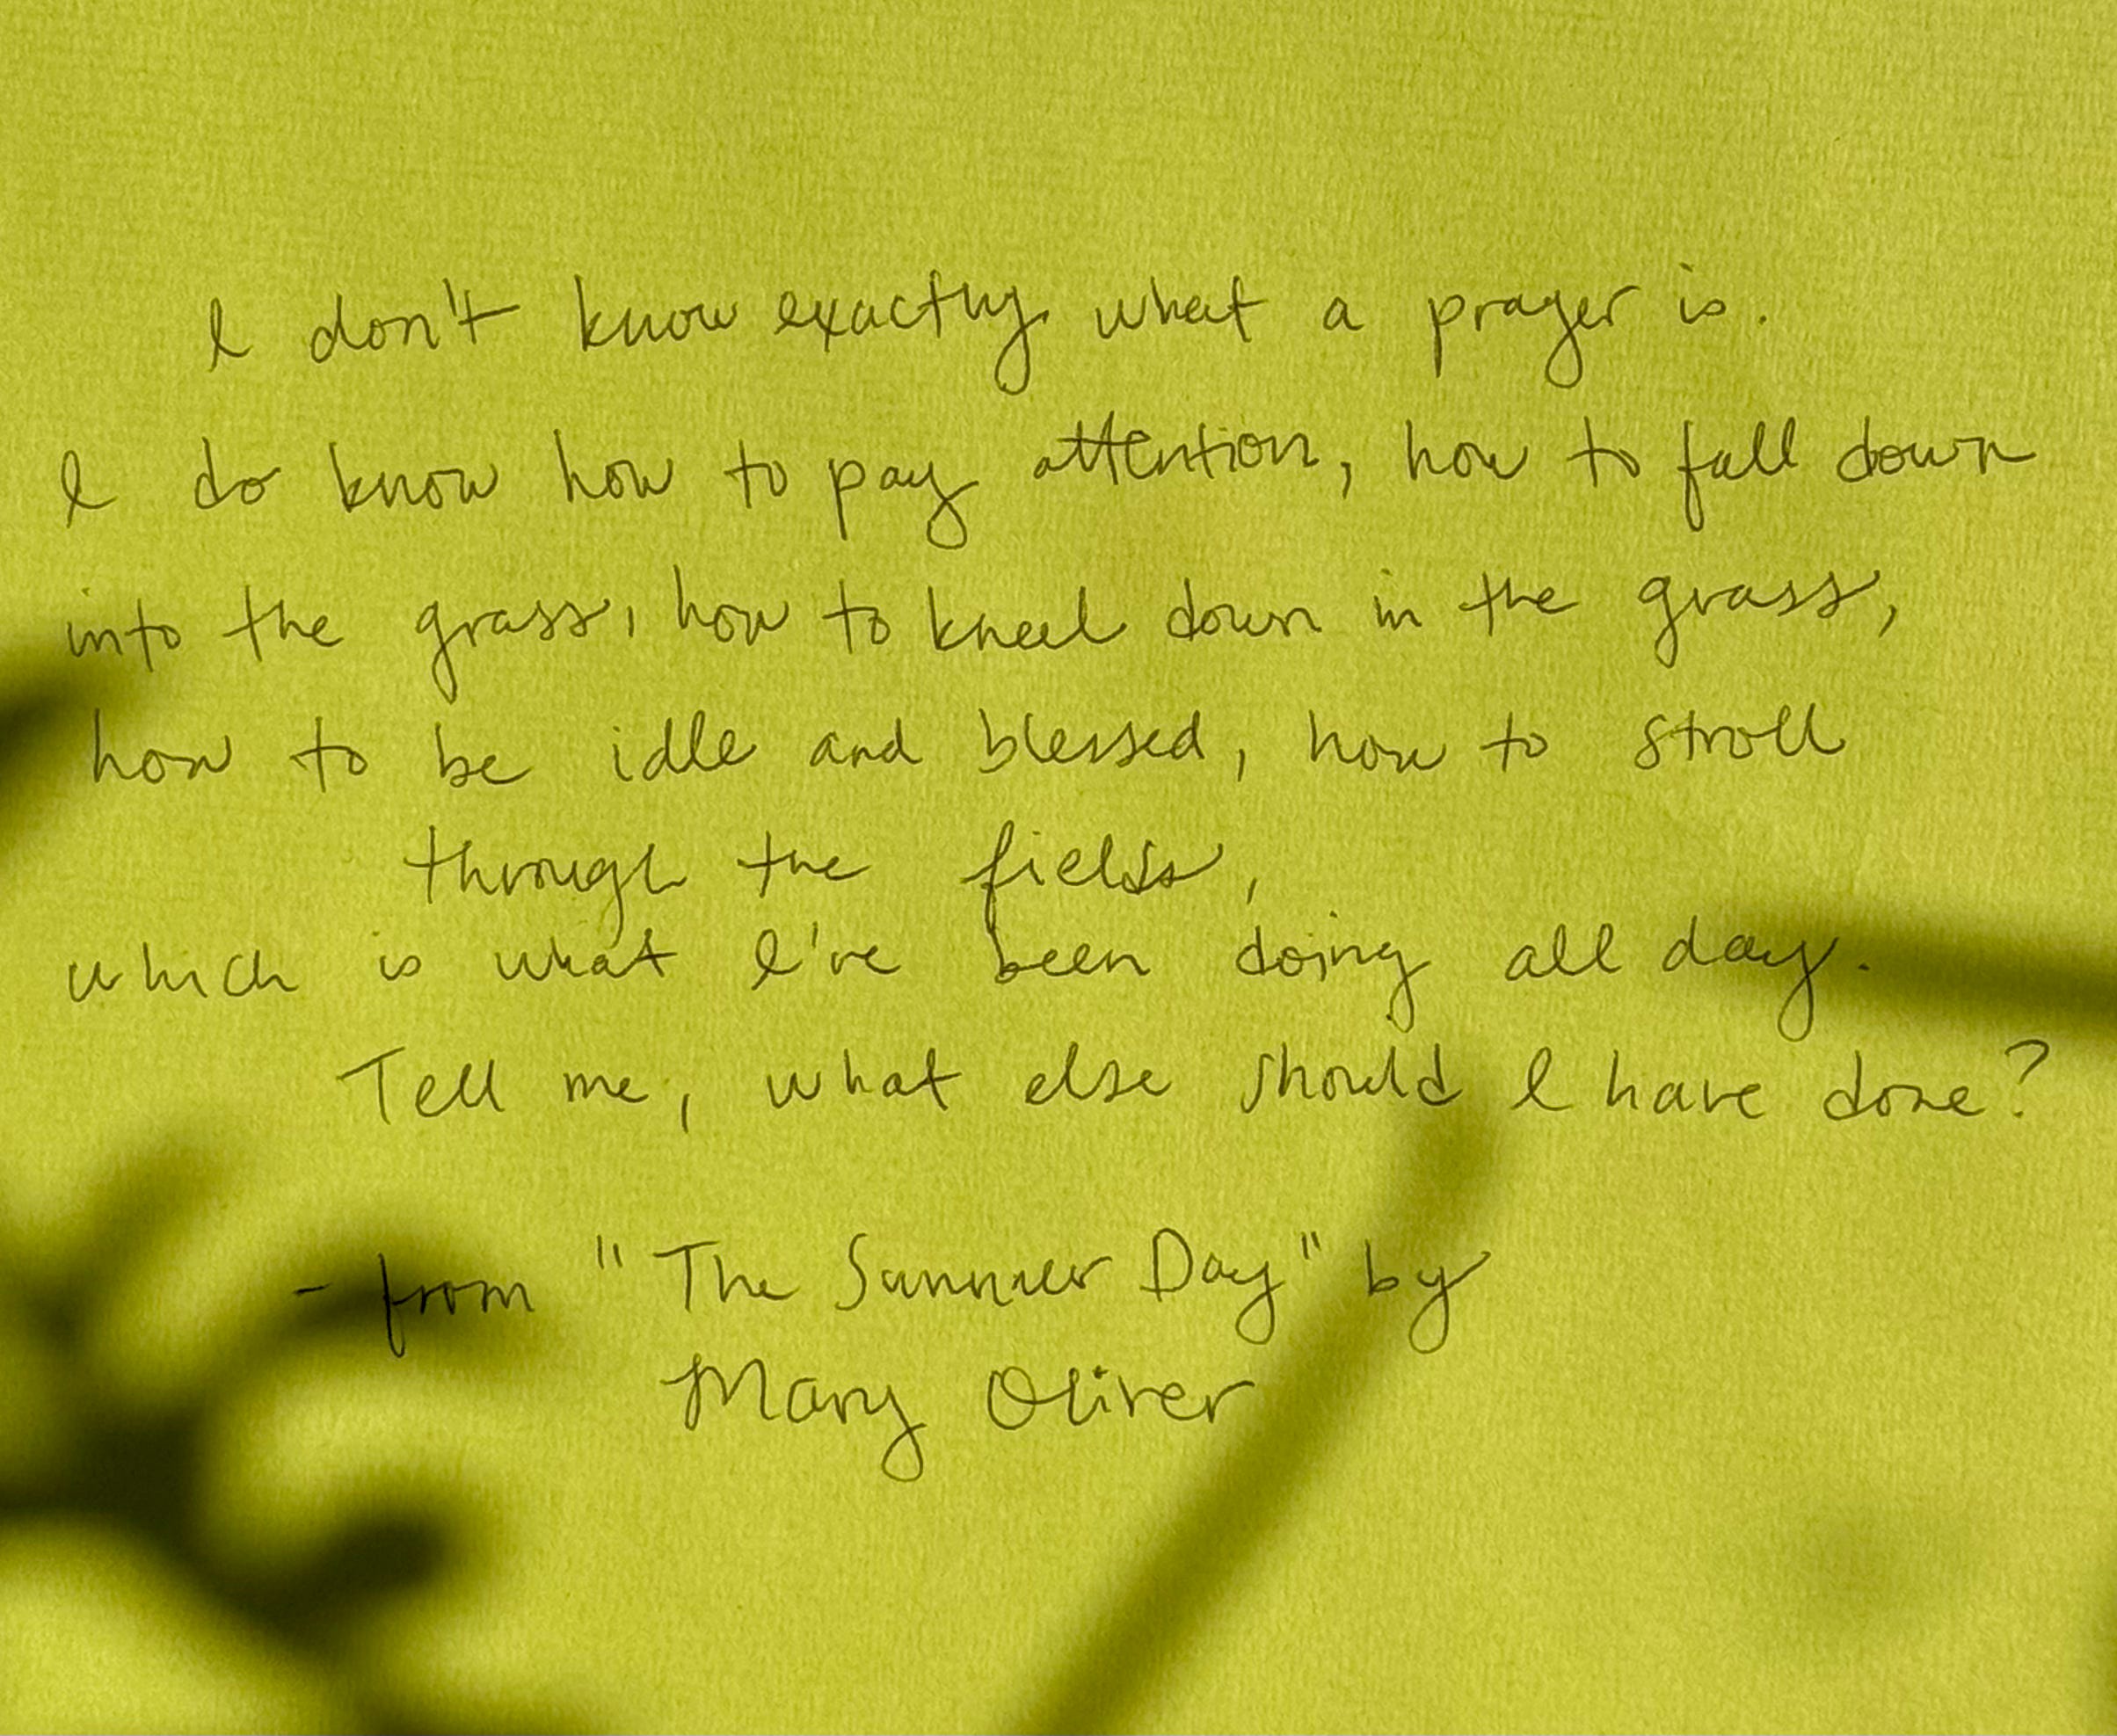 I don't know exactly what a prayer is.
I do know how to pay attention, how to fall down
into the grass, how to kneel down in the grass,
how to be idle and blessed, how to stroll
through the fields,
which is what I've been doing all day.
Tell me, what else should I have done?
- from "The Summer Day" by
Mary Oliver